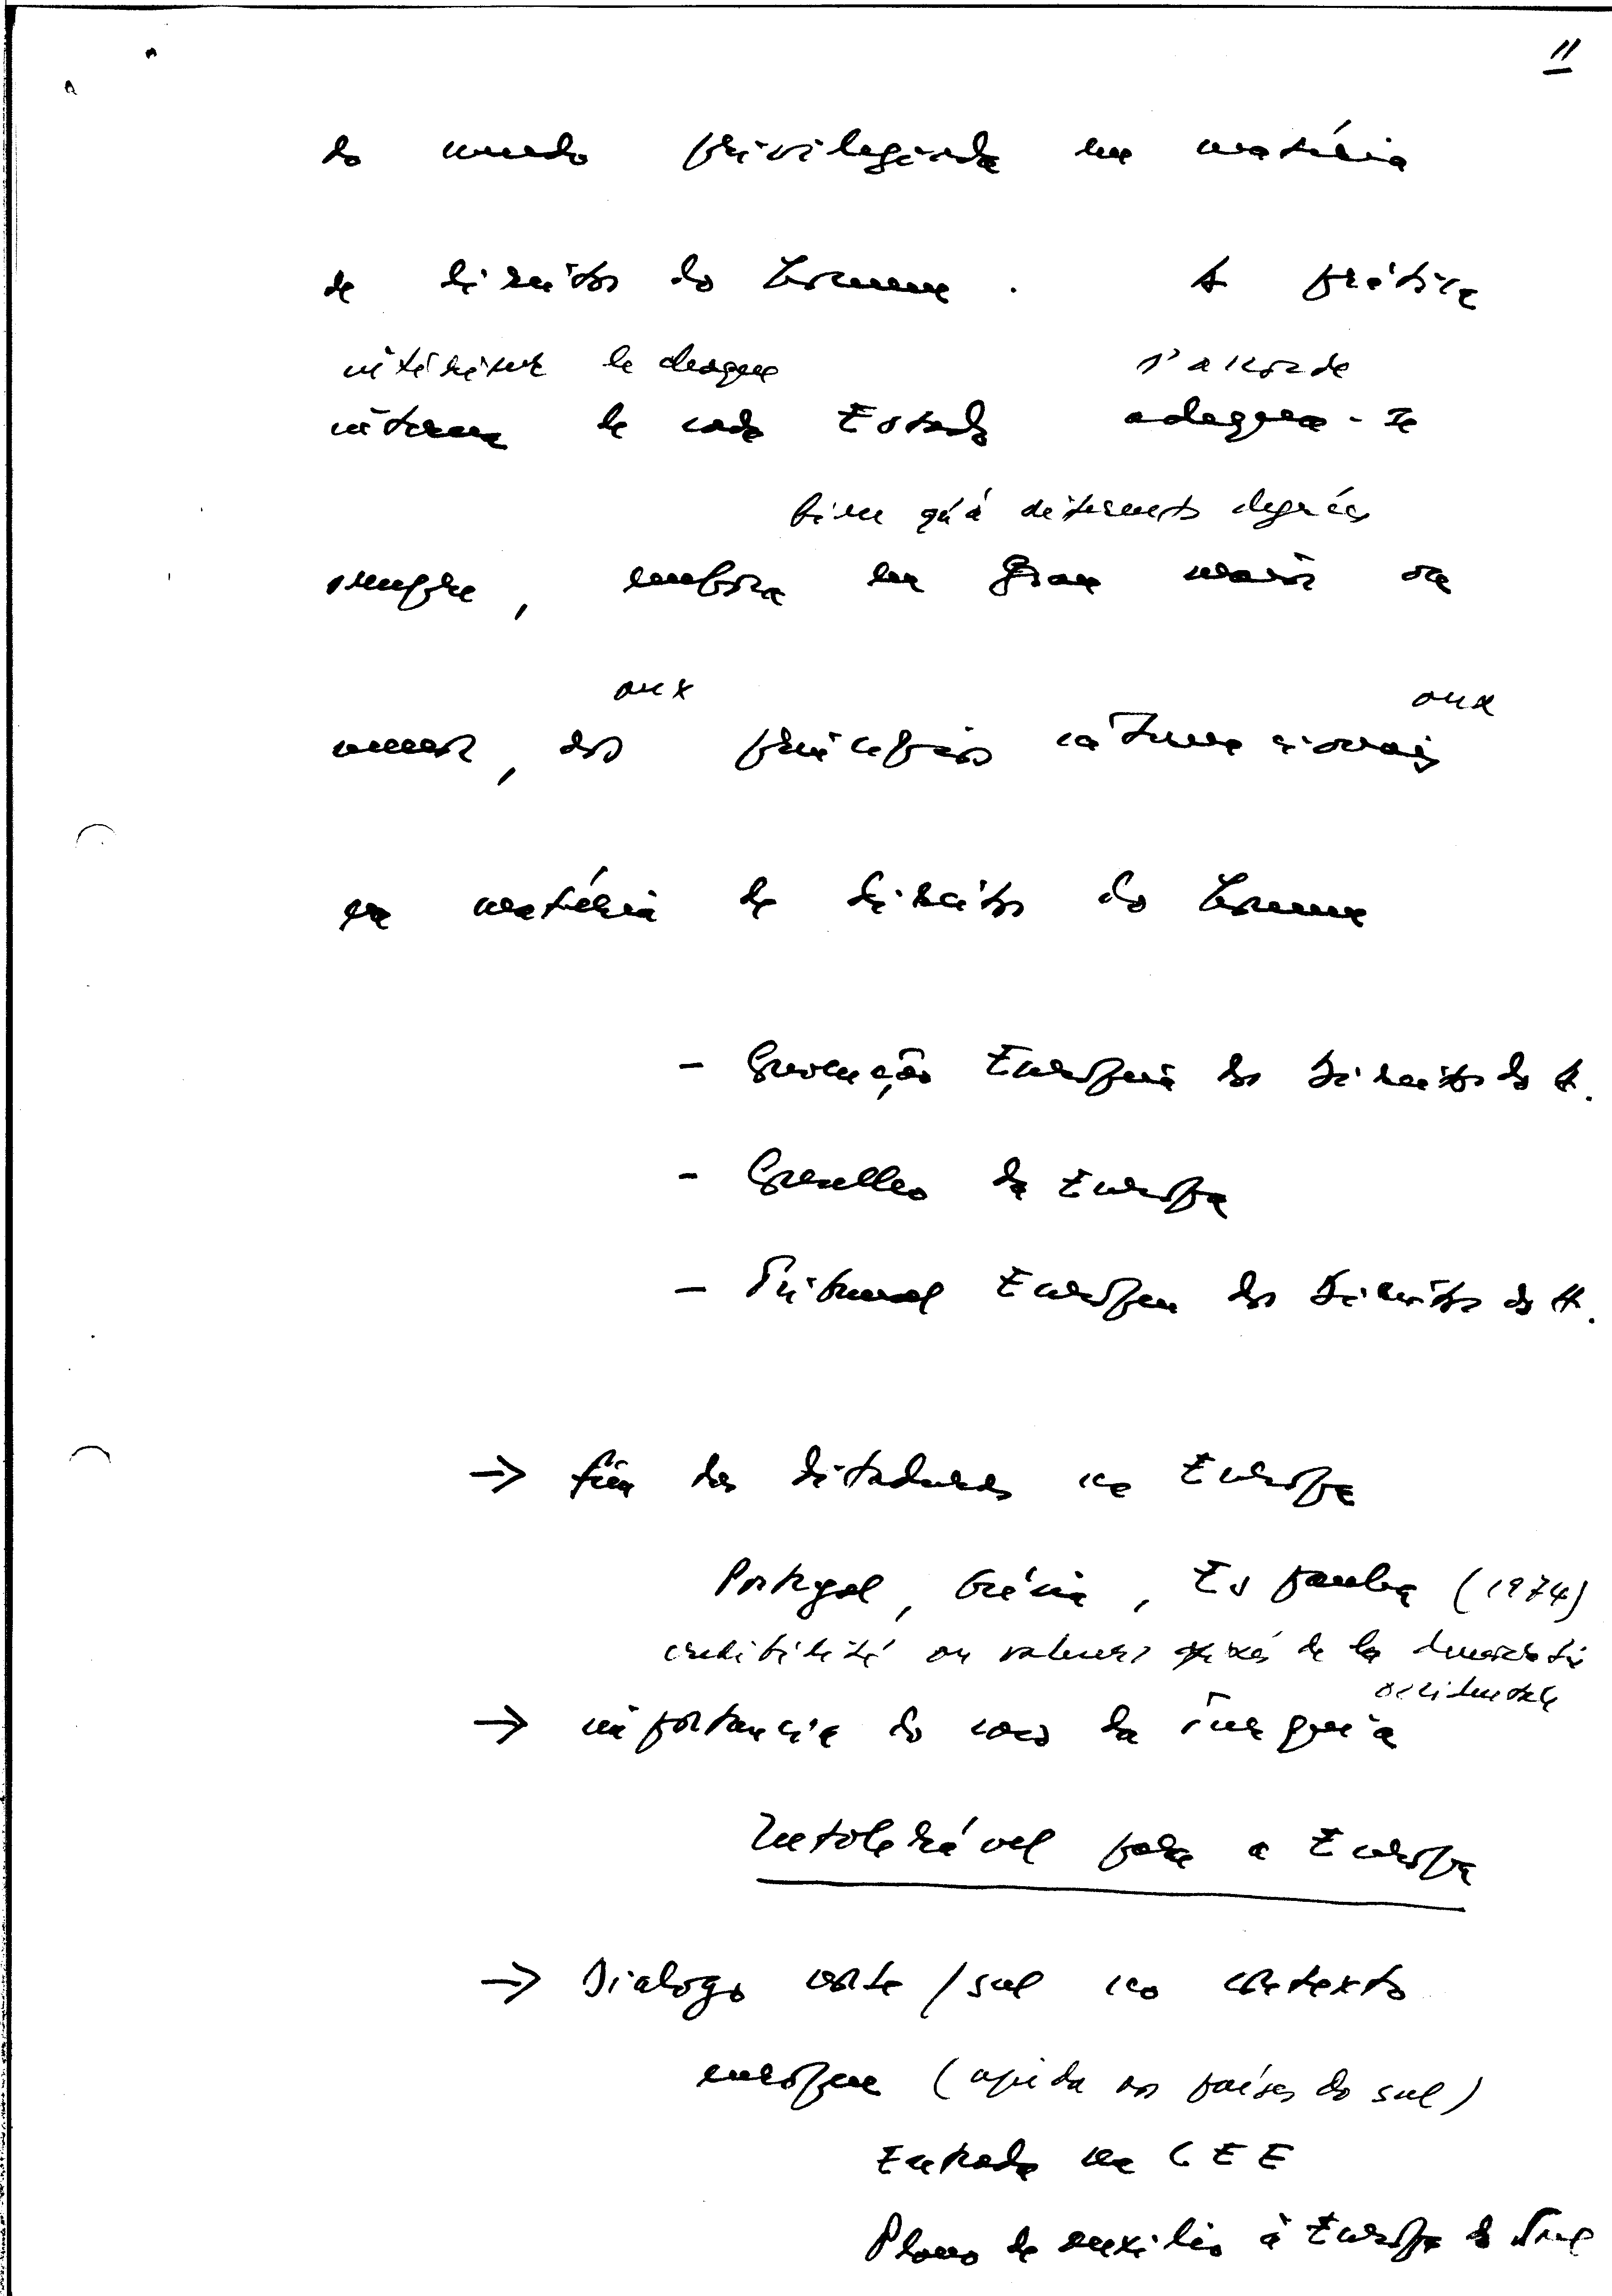 11
do mundo privilegiada em matéria
de direitos do homem. A prática
intérieur de chaque s'accorde
interna de cada Estado adequa-se
bien qu'à différents degrés
sempre, embora em grau maior ou
aux aux
menor, aos princípios internacionais
em matéria de direitos do homem
- Convenção Europeia dos Direitos do H.
- Conselho da Europa
- Tribunal Europeu dos Direitos do H.
→ fim das ditaduras na Europa
Portugal, Grécia, Espanha (1974)
crédibilité au valeurs de la démocratie
occidentale
→ importancia do caso da Turquia
Intolerável para a Europa
→ Dialogo norte/sul no contexto
europeu (ajuda aos países do sul)
Entrada na CEE
Plano de auxilio à Europa do Sul